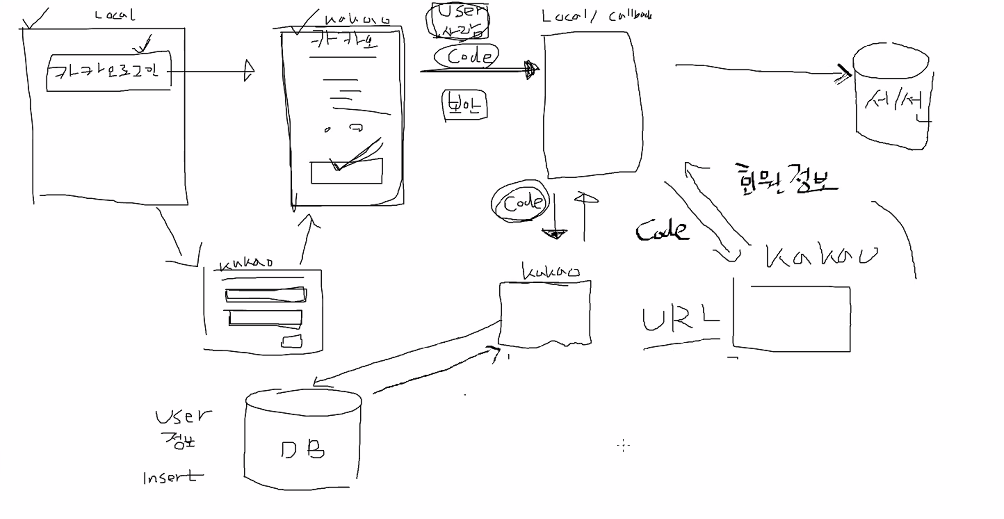 Local
카카오로그인
kakao
카카오
User
사람
Code
보안
Local/ callback
세션
kakao
Code
kakao
회원정보
Code
kakao
URL
User
정보
Insert
DB